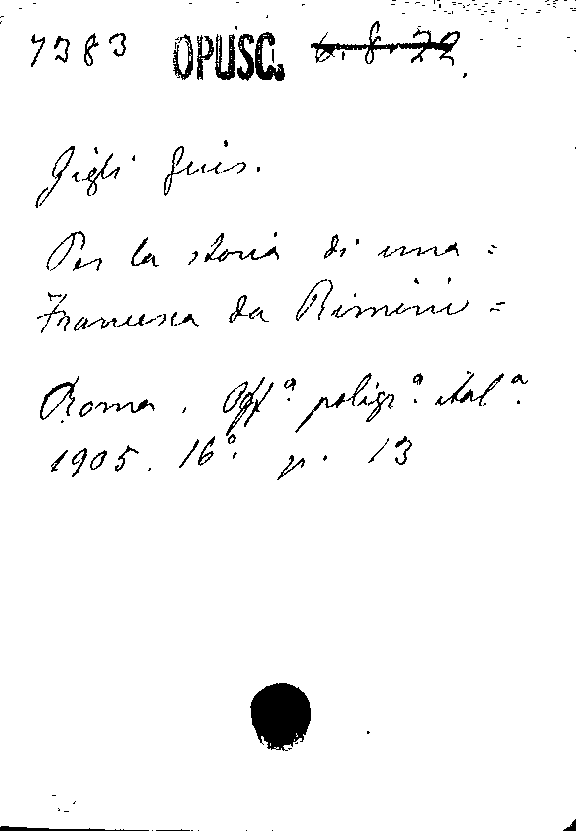 7383 OPUSC. 6.8.22.
Gigli Gius.
Per la storia di una =
Francesca da Rimini =
Roma. Offª. poligrª. italª.
1905. 16°. p. 13